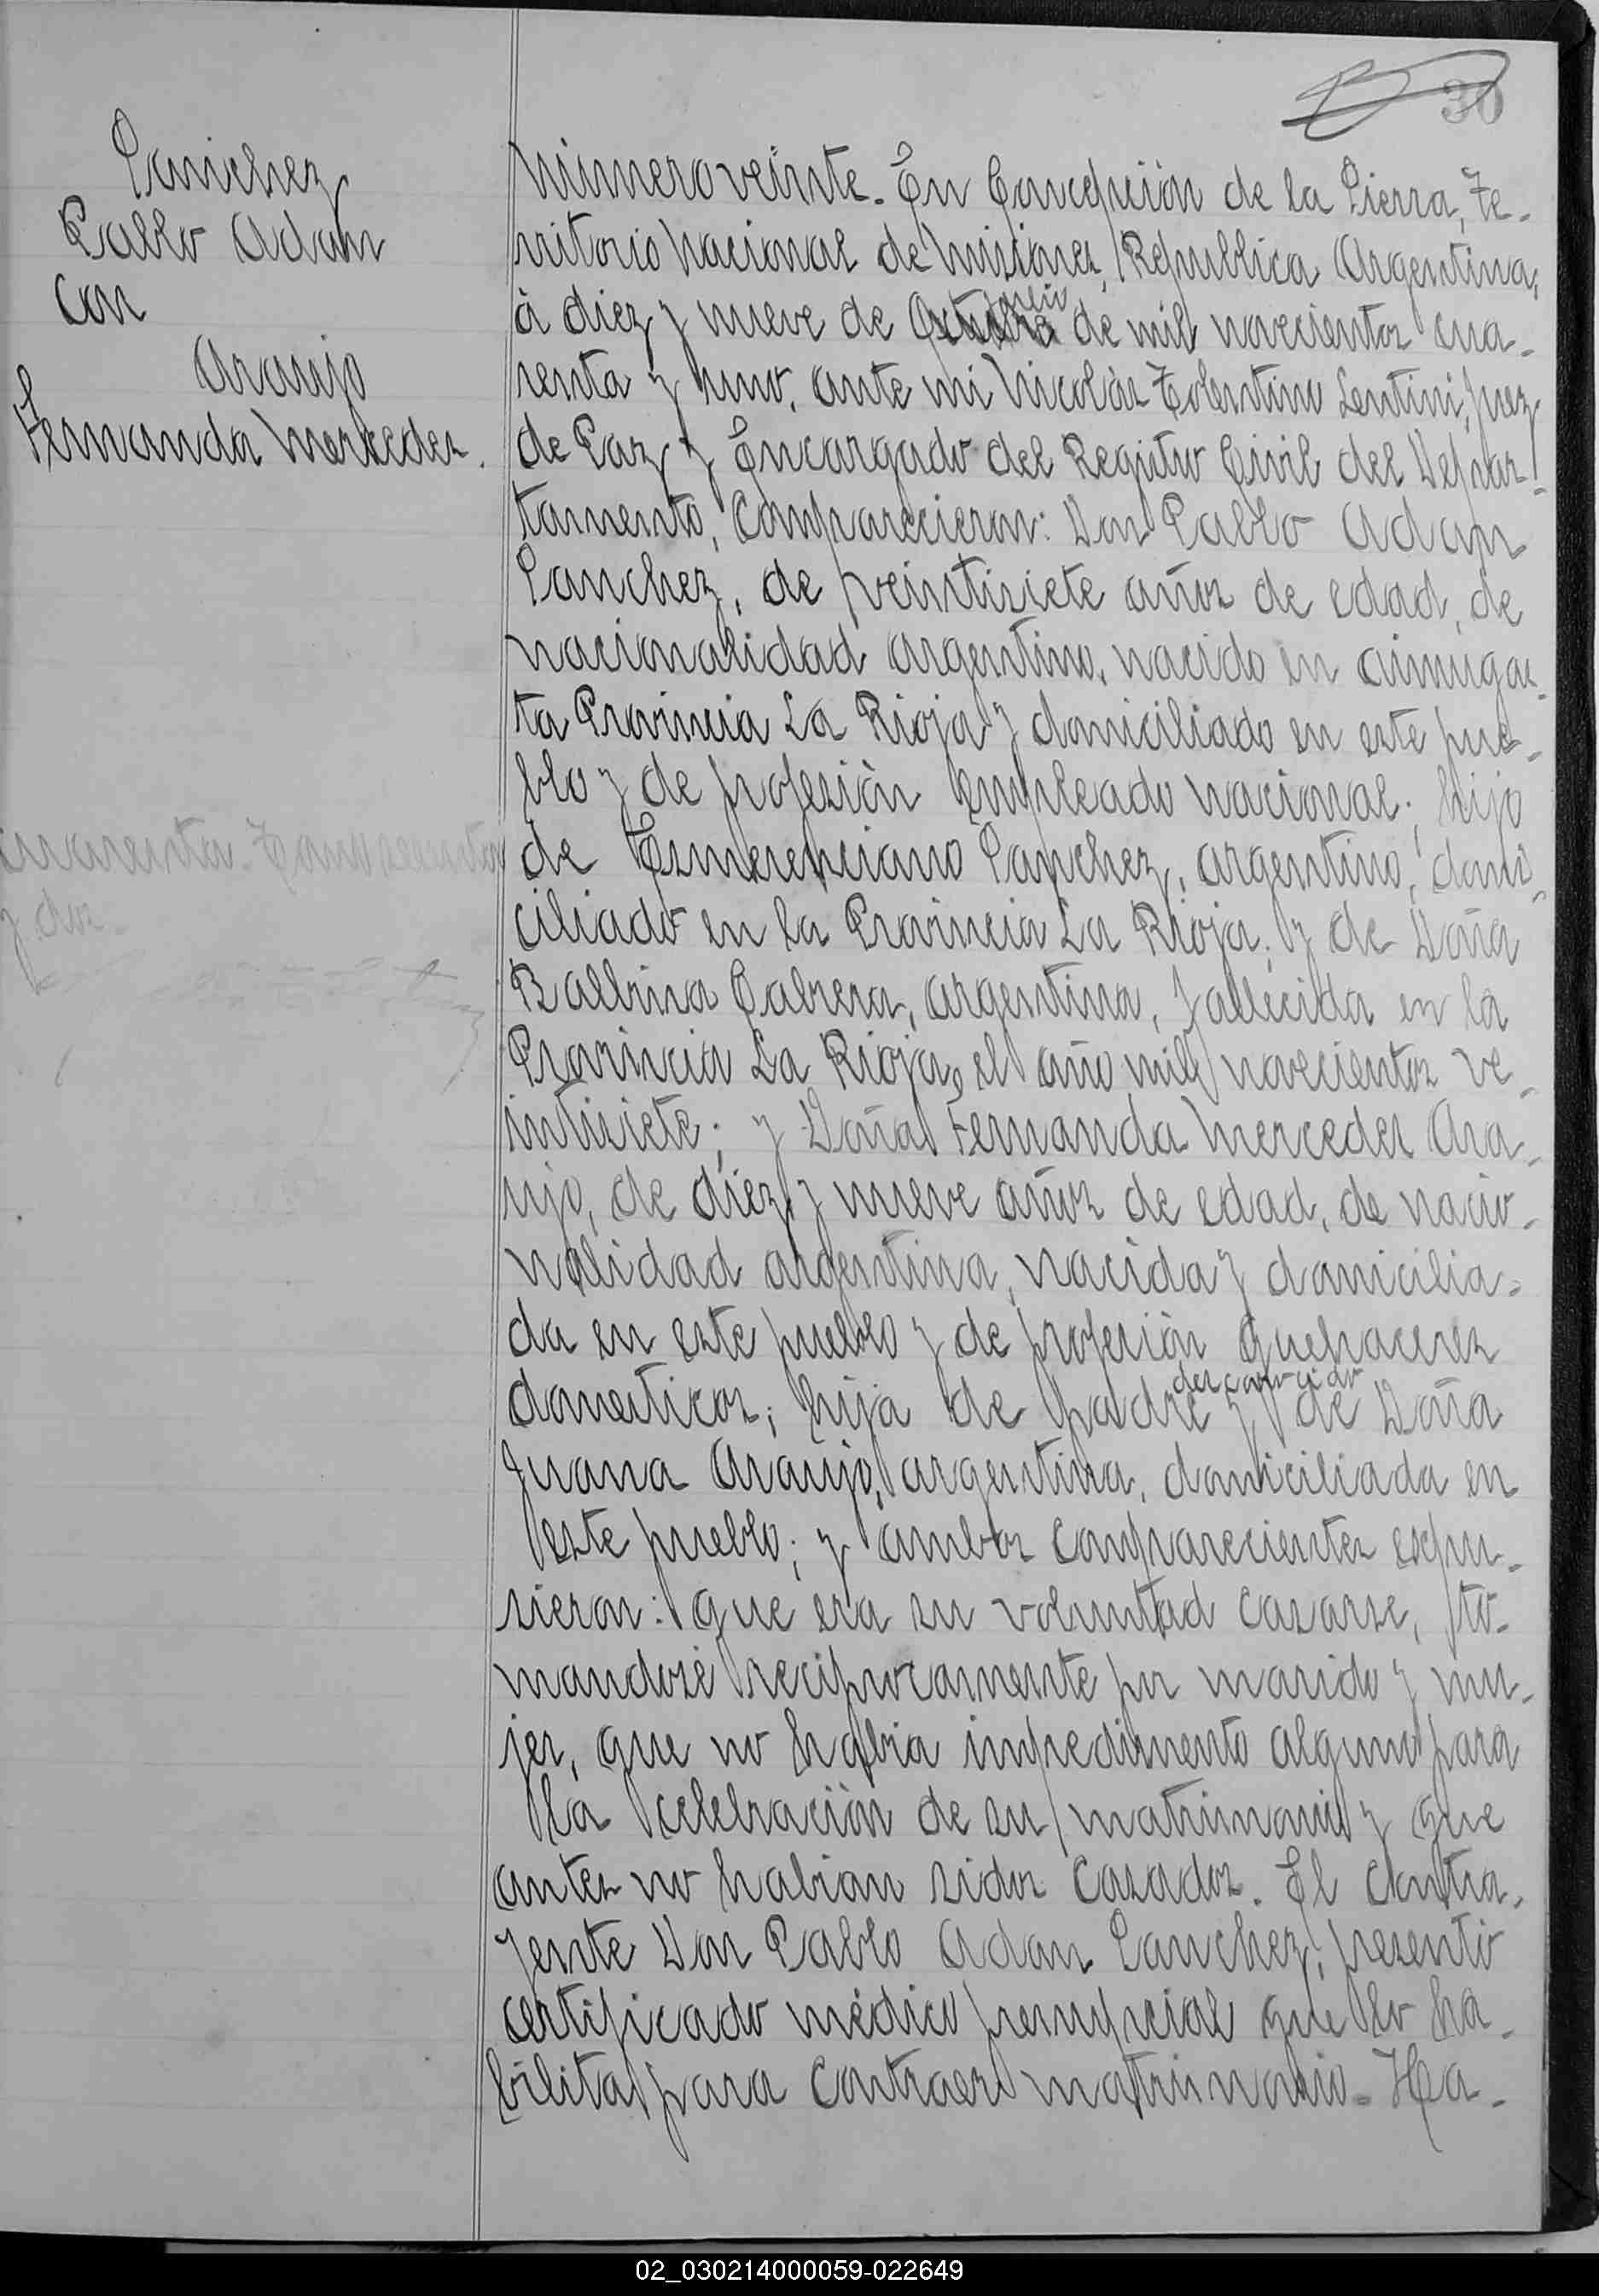 30
Sanchez
Pablo Adan
Con
Araujo
Fernanda Mercedes.
Número veinte. En Concepción de la Sierra, Te-
rritorio Nacional de Misiones, Republica Argentina,
à diez y nueve de de mil novecientos cua-
renta y uno, ante mi Nicolás Tolentino Sentini, Juez
de Paz y Encargado del Registro Civil del Depar-
tamento, Comparecieron: Don Pablo Adan
Sanchez, de veintisiete años de edad, de
nacionalidad argentino, nacido en Aimogas-
ta Provincia La Rioja y domiciliado en este pue-
blo y de profesión Empleado Nacional; hijo
de Esmerenciano Sanchez, argentino, domi-
ciliado en la Provincia La Rioja; y de Doña
Balbina Cabrera, argentina, fallecida en la
Provincia La Rioja, el año mil novecientos ve-
intisiete; y Doña Fernanda Mercedes Ara-
ujo, de diez y nueve años de edad, de nacio-
nalidad argentina, nacida y domicilia-
da en este pueblo y de profesión quehaceres
desconocido
domesticos; hija de padre y de Doña
Juana Araujo, argentina, domiciliada en
este pueblo; y ambos comparecientes expu-
sieron: que era su voluntad casarse, to-
mandose reciprocamente por marido y mu-
jer, que no habia impedimento alguno para
la celebración de su matrimonio y que
antes no habian sidos casados. El contra-
yente Don Pablo Adan Sanchez, presentó
certificado médico prenupcial que lo ha-
bilita para contraer matrimonio. Ha-
02_030214000059-022649